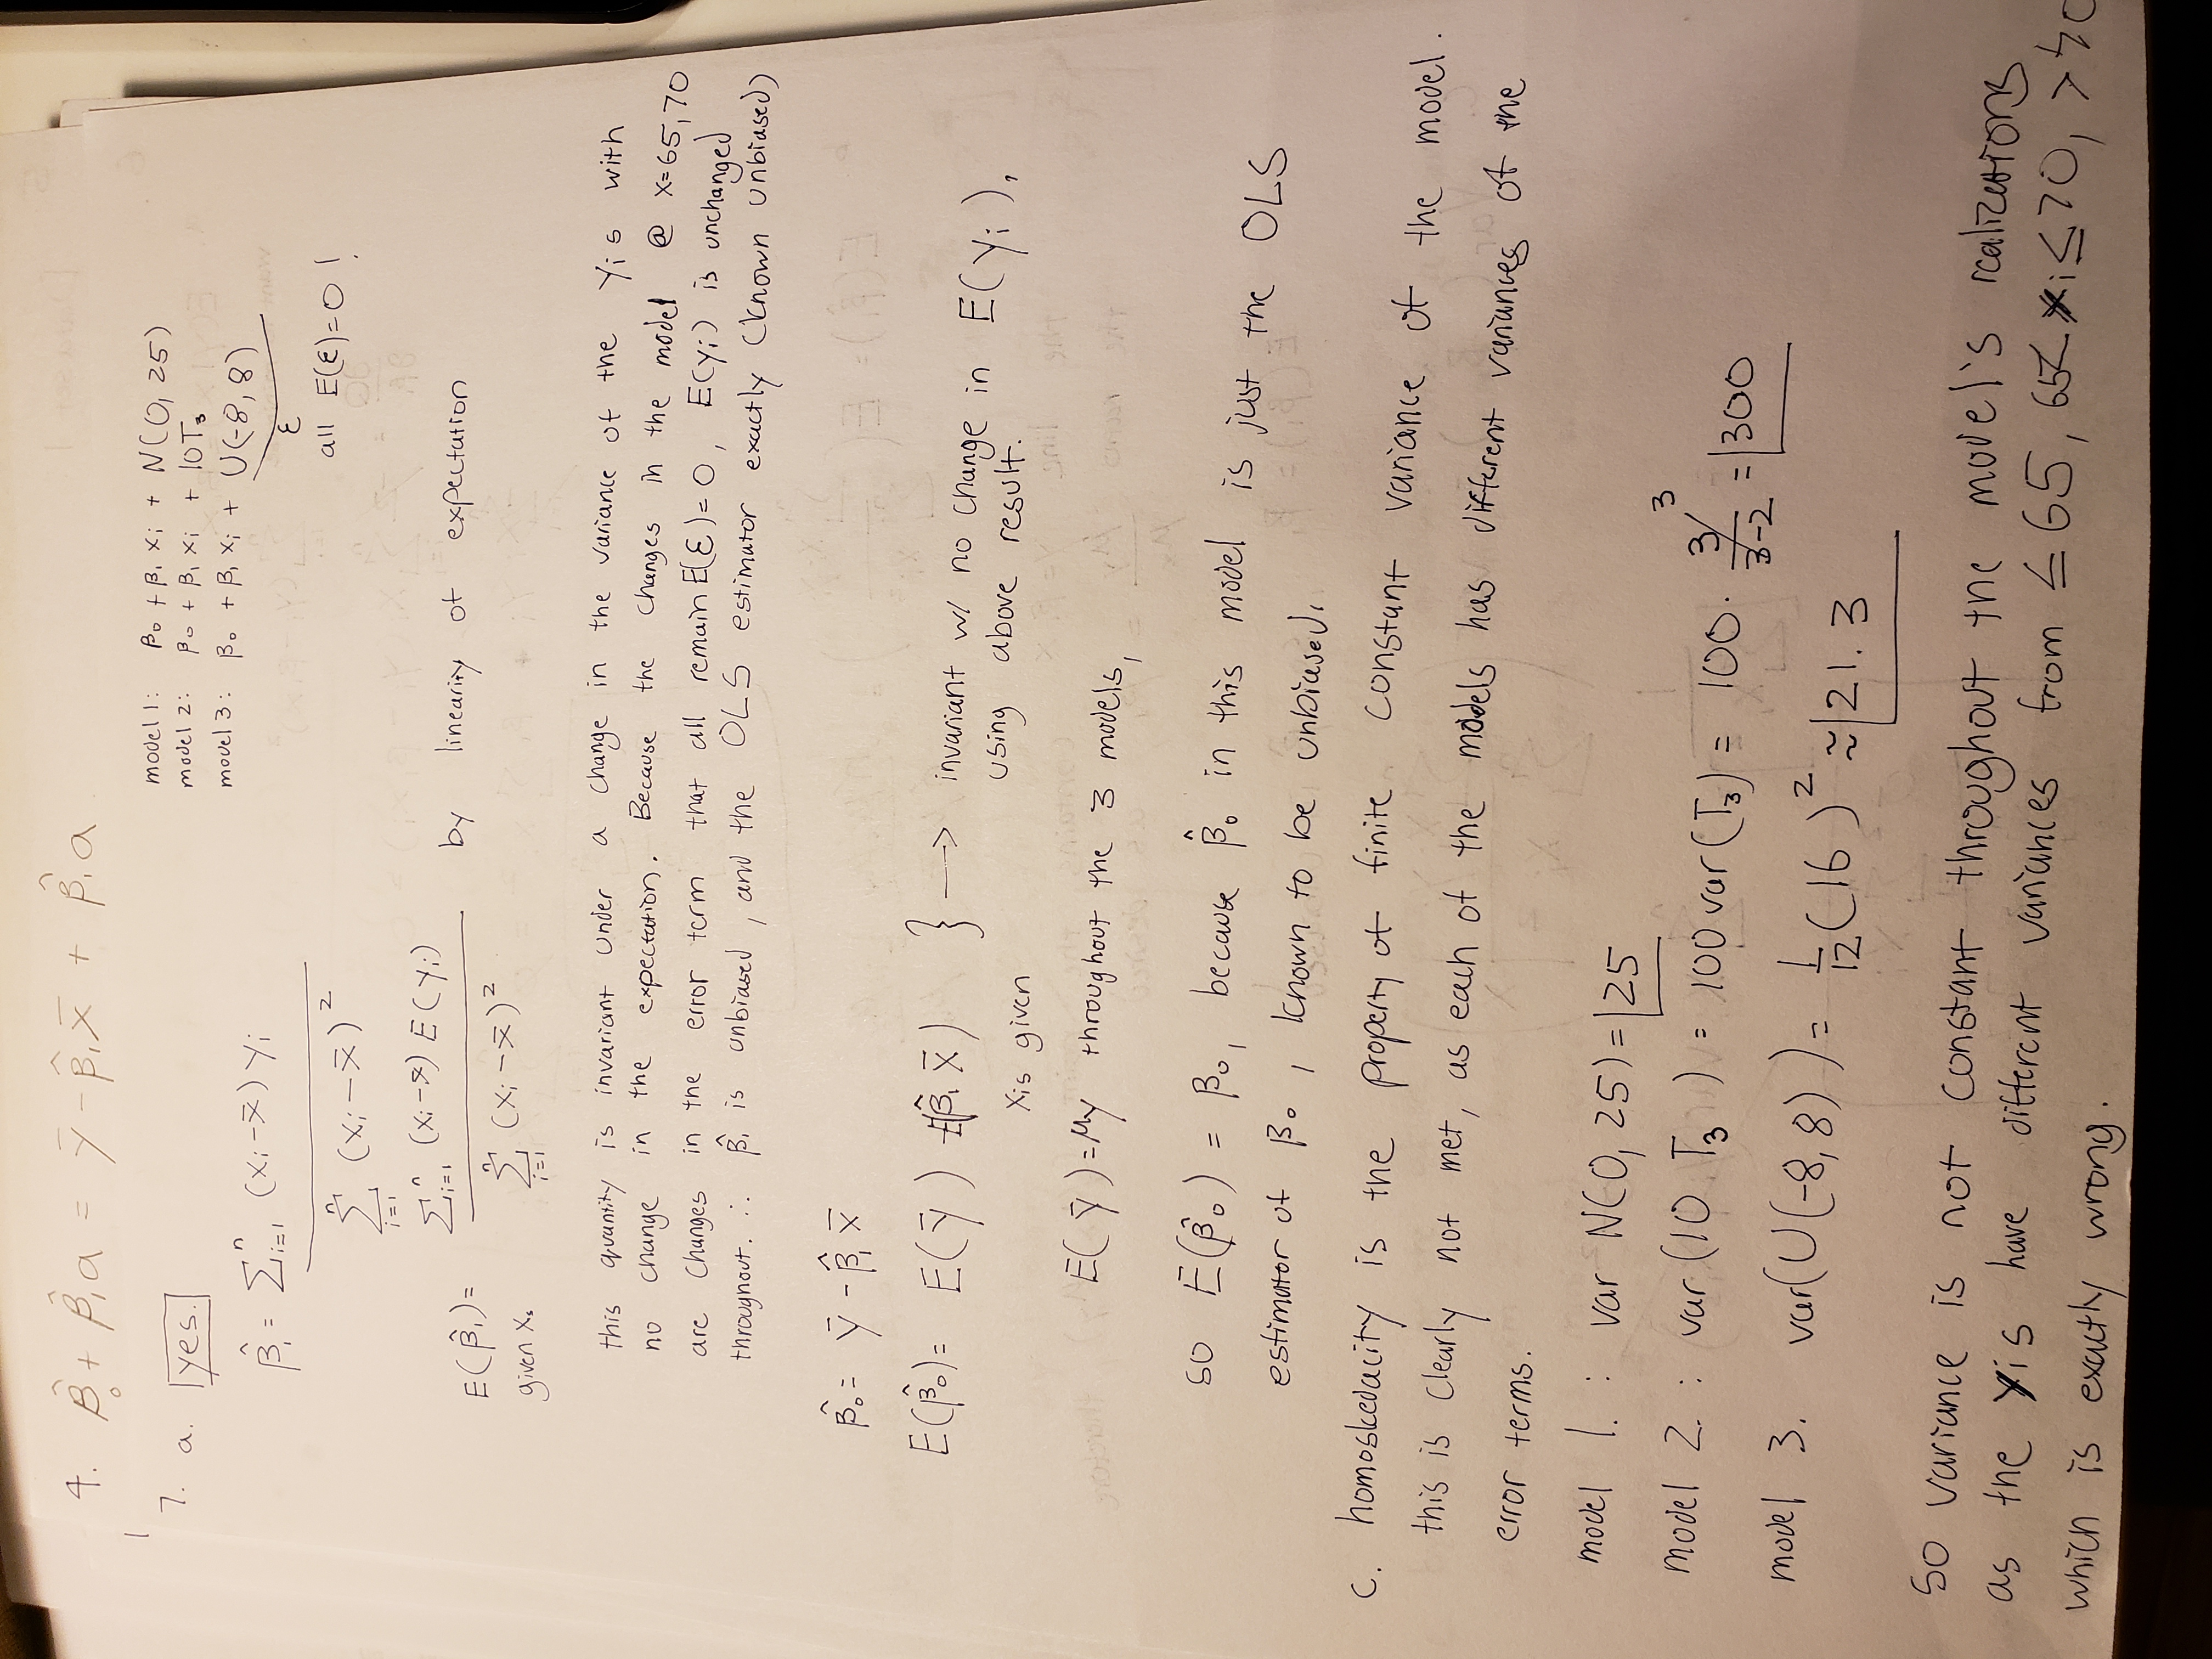 4. β̂₀ + β̂₁a = ȳ - β̂₁x̄ + β̂₁a
7. a. yes.
model 1: β₀ + β₁ xᵢ + N(0, 25)
model 2: β₀ + β₁ xᵢ + 10T₃
model 3: β₀ + β₁ xᵢ + U(-8, 8)
ε
all E(ε)=0 !
β̂₁ = Σⁿᵢ₌₁ (xᵢ-x̄) yᵢ
Σⁿᵢ₌₁ (xᵢ-x̄)²
Σⁿᵢ₌₁ (xᵢ-x̄) E(yᵢ)
E(β̂₁)= by linearity of expectation
given xs Σⁿᵢ₌₁ (xᵢ-x̄)²
this quantity is invariant under a change in the variance of the yis with
no change in the expectation. Because the changes in the model @ x=65,70
are changes in the error term that all remain E(ε)=0, E(yᵢ) is unchanged
throughout. ∴ β̂₁ is unbiased, and the OLS estimator exactly (known unbiased)
β̂₀ = ȳ - β̂₁ x̄
E(β̂₀)= E(ȳ) - E(β̂₁ x̄) } → invariant w/ no change in E(yᵢ),
using above result.
xis given
E(ȳ)=μy throughout the 3 models,
so E(β̂₀) = β₀, because β̂₀ in this model is just the OLS
estimator of β₀, known to be unbiased.
c. homoskedacity is the property of finite constant variance of the model.
this is clearly not met, as each of the models has different variances of the
error terms.
model 1. : var N(0, 25) = 25
model 2. : var (10 T₃) = 100 var(T₃) = 100 · 3/3-2 3 = 300
model 3. var(U(-8,8)) = 1/12 (16)² ≈ 21.3
So variance is not constant throughout the model's realizations
as the yis have different variances from ≤65, 65< xi ≤70, >70
which is exactly wrong.